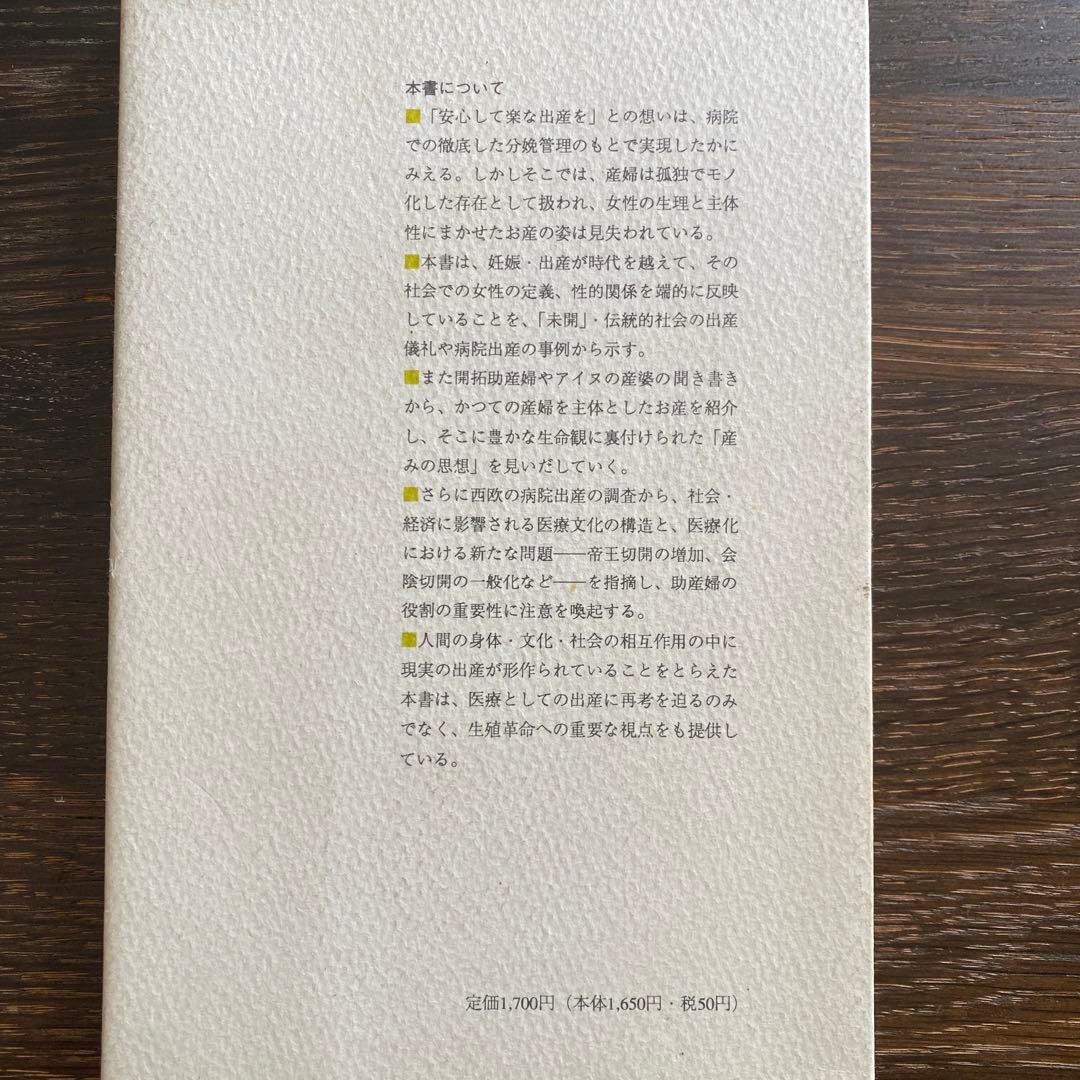 本書について
■「安心して楽な出産を」との想いは、病院
での徹底した分娩管理のもとで実現したかに
みえる。しかしそこでは、産婦は孤独でモノ
化した存在として扱われ、女性の生理と主体
性にまかせたお産の姿は見失われている。
■本書は、妊娠・出産が時代を越えて、その
社会での女性の定義、性的関係を端的に反映
していることを、「未開」・伝統的社会の出産
儀礼や病院出産の事例から示す。
■また開拓助産婦やアイヌの産婆の聞き書き
から、かつての産婦を主体としたお産を紹介
し、そこに豊かな生命観に裏付けられた「産
みの思想」を見いだしていく。
■さらに西欧の病院出産の調査から、社会・
経済に影響される医療文化の構造と、医療化
における新たな問題──帝王切開の増加、会
陰切開の一般化など──を指摘し、助産婦の
役割の重要性に注意を喚起する。
■人間の身体・文化・社会の相互作用の中に
現実の出産が形作られていることをとらえた
本書は、医療としての出産に再考を迫るのみ
でなく、生殖革命への重要な視点をも提供し
ている。
定価1,700円（本体1,650円・税50円）